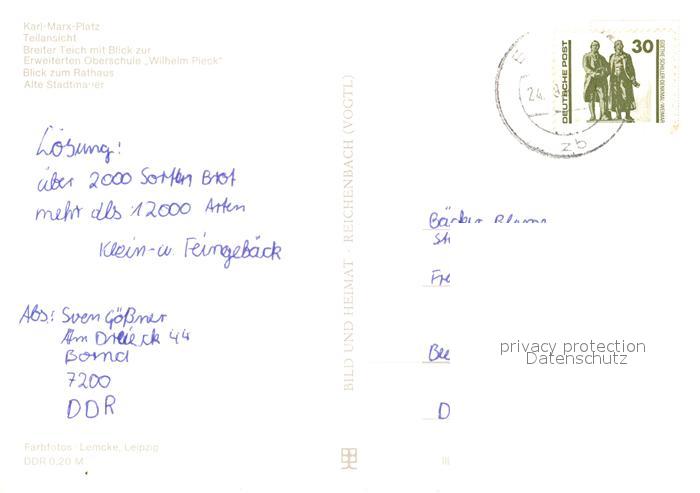 Karl-Marx-Platz
Teilansicht
Breiter Teich mit Blick zur
Erweiterten Oberschule „Wilhelm Pieck"
Blick zum Rathaus
Alte Stadtmauer
Lösung!
über 2000 Sorten Brot
mehr als 12000 Arten
Klein- u. Feingebäck
Abs: Sven Gößner
Am Dreieck 44
Borna
7200
DDR
Farbfotos: Lemcke, Leipzig
DDR 0,20 M
BILD UND HEIMAT · REICHENBACH (VOGTL)
DEUTSCHE POST
30
GOETHE-SCHILLER-DENKMAL · WEIMAR
24.
zb
Bäcker Blume
D
privacy protection
Datenschutz